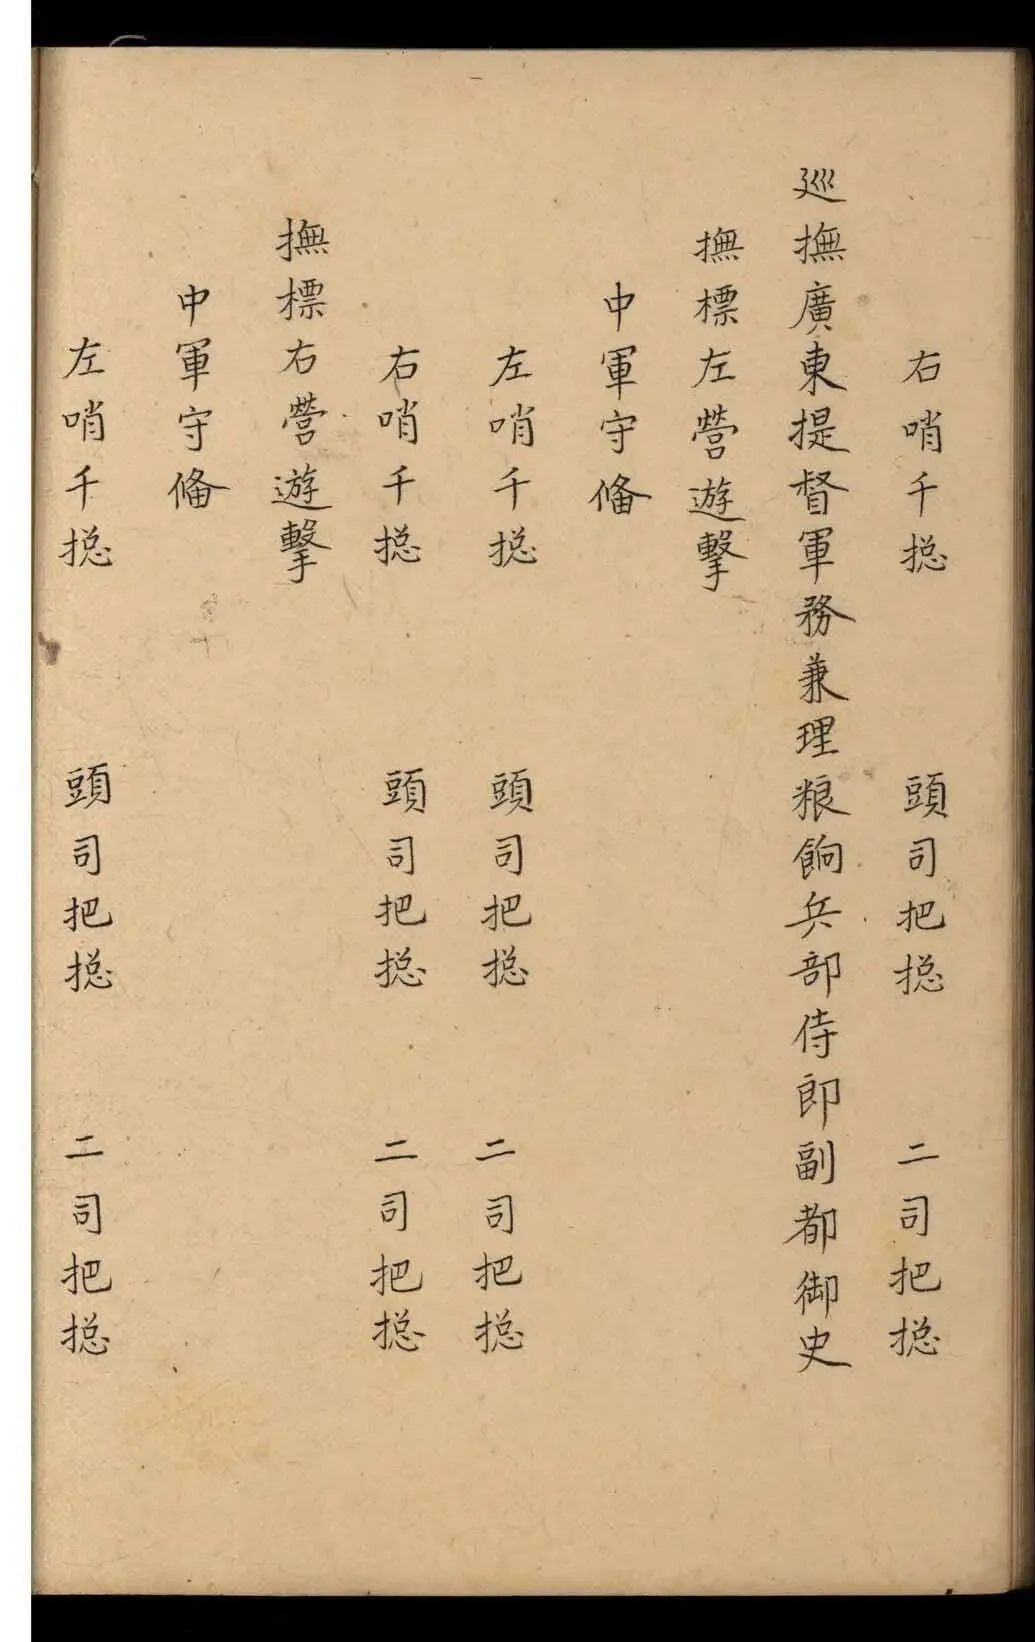 右哨千摠 頭司把摠 二司把摠
廵撫廣東提督軍務兼理粮餉兵部侍郎副都御史
撫標左營遊擊
中軍守偹
左哨千摠 頭司把摠 二司把摠
右哨千摠 頭司把摠 二司把摠
撫標右營遊擊
中軍守偹
左哨千摠 頭司把摠 二司把摠